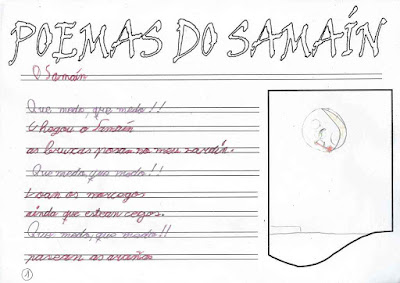 POEMAS DO SAMAÍN
O Samaín
Que medo, que medo!!
Chegou o Samaín
as bruxas posan no meu xardín.
Que medo, que medo!!
Voan os morcegos
ainda que estean cegos.
Que medo, que medo!!
pasean as arañas
1